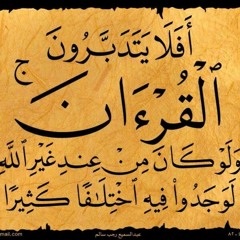 أَفَلَا يَتَدَبَّرُونَ
ٱلْقُرْءَانَ ج
وَلَوْ كَانَ مِنْ عِندِ غَيْرِ ٱللَّهِ
لَوَجَدُوا۟ فِيهِ ٱخْتِلَـٰفًا كَثِيرًا
عبدالسميع رجب سالم